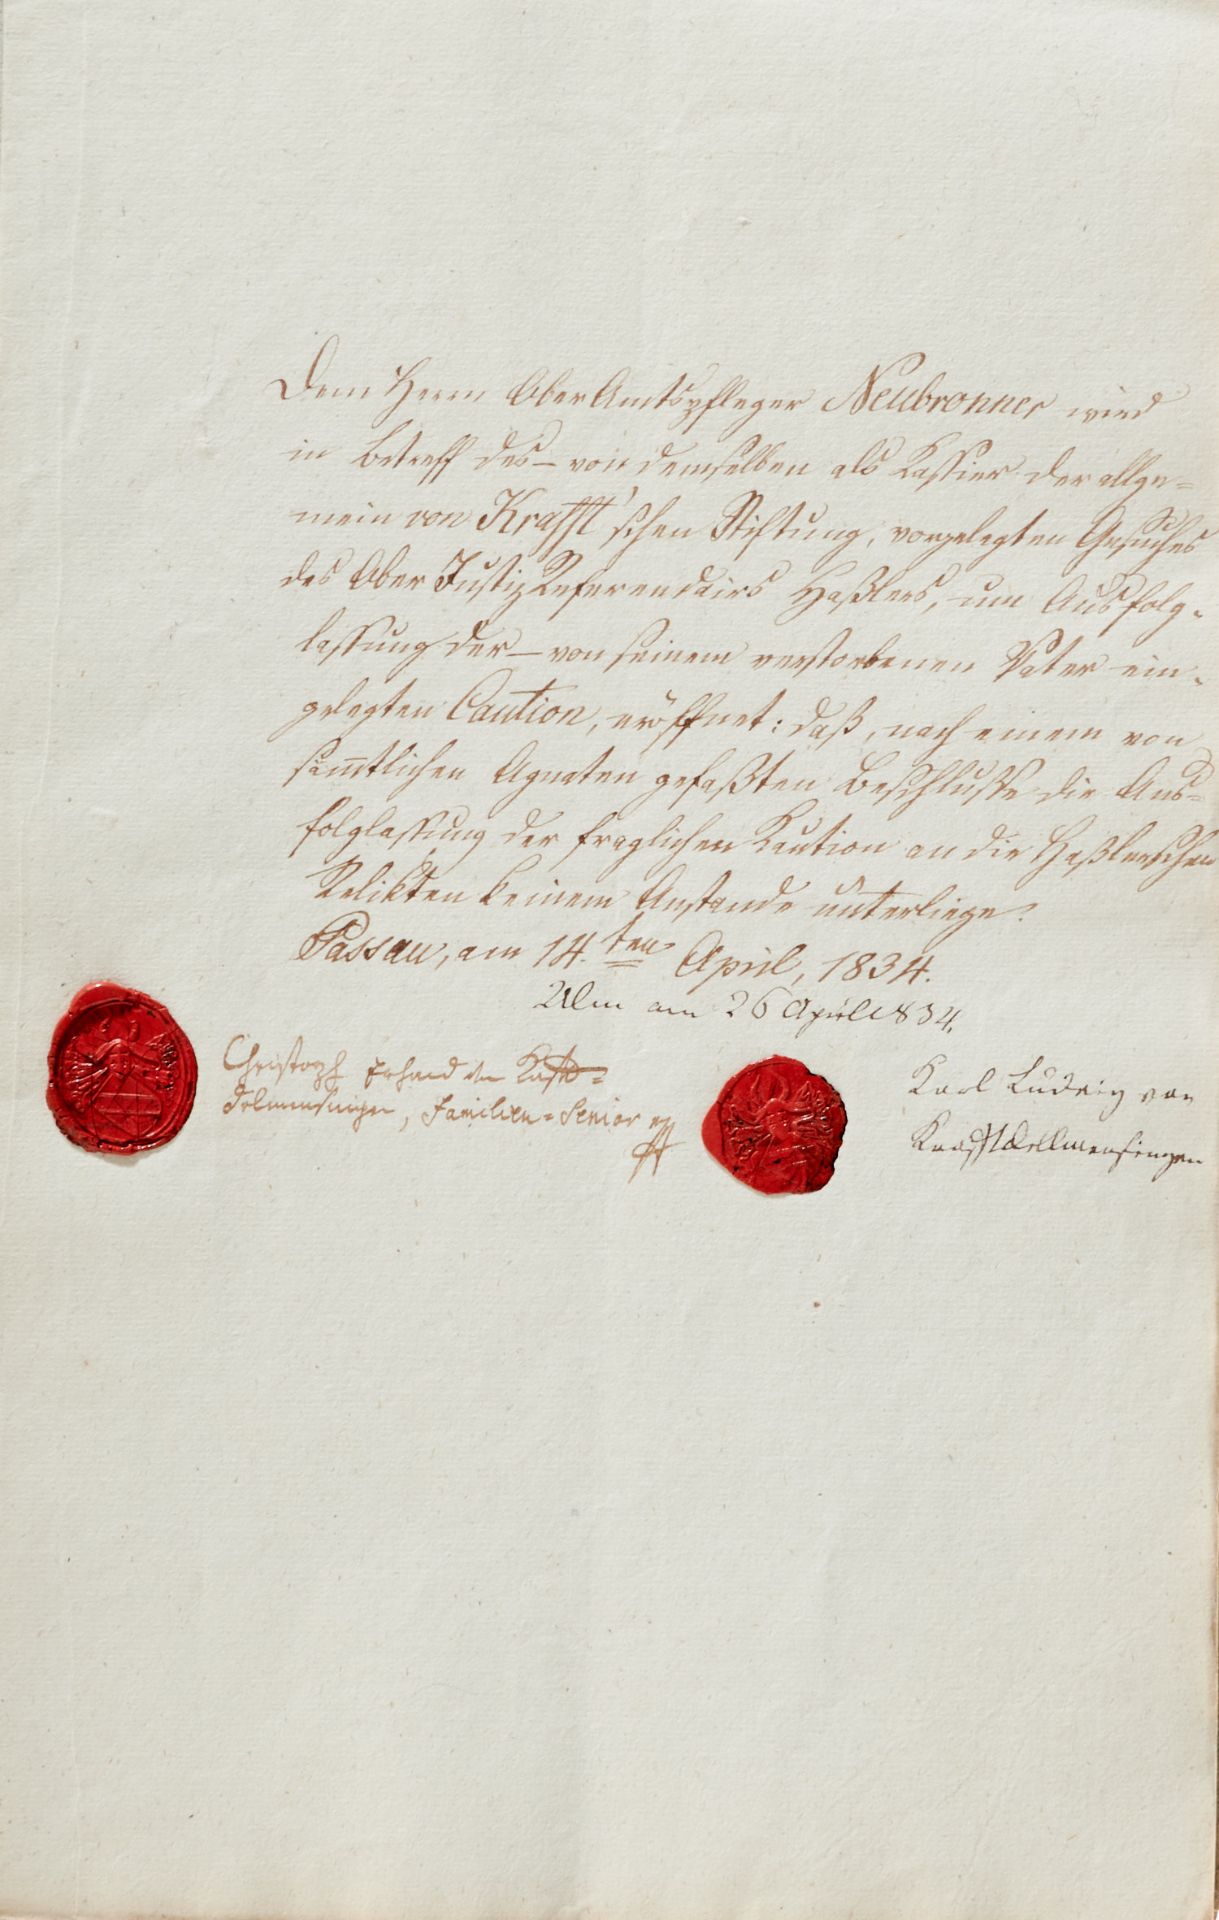 Dem Herrn OberAmtspfleger Neubronner wird
in Betreff des – von demselben als Kassier der allge-
mein von Krafft'schen Stiftung, vorgelegten Gesuches
des Ober JustizReferendairs Haßlers, um Ausfolg-
lassung der – von seinem verstorbenen Vater ein-
gelegten Caution, eröffnet: daß, nach einem von
sämmtlichen Agnaten gefaßten Beschlusse die Aus-
folglassung der fraglichen Kaution an die Haßlerschen
Relikten keinem Anstande unterliege.
Passau, am 14.ten April, 1834.
Ulm am 26 April 1834.
Christoph Erhard von Kraft-
Delmensingen, Familien-Senior
Karl Ludwig von
Krafft Dellmensingen